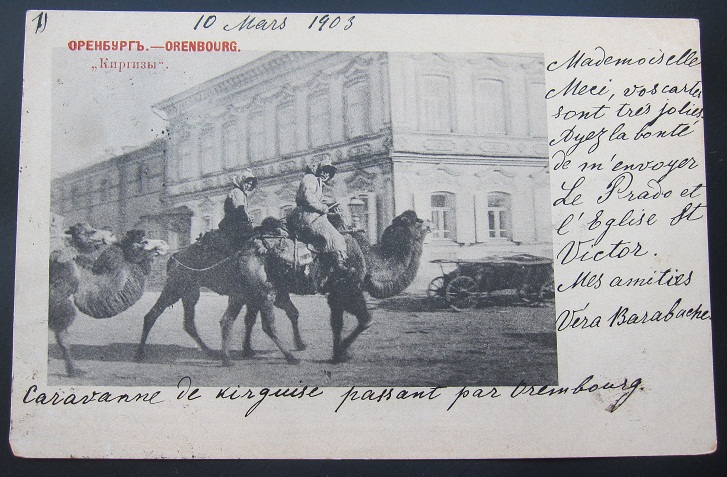 1)
10 Mars 1903
ОРЕНБУРГЪ.—ORENBOURG.
„Киргизы".
Mademoiselle
Meci, vos cartes
sont très jolies.
Ayez la bonté
de m'envoyer
Le Prado et
l'Eglise St
Victor.
Mes amitiés
Véra Barabache
Caravanne de kirguise passant par Orembourg.